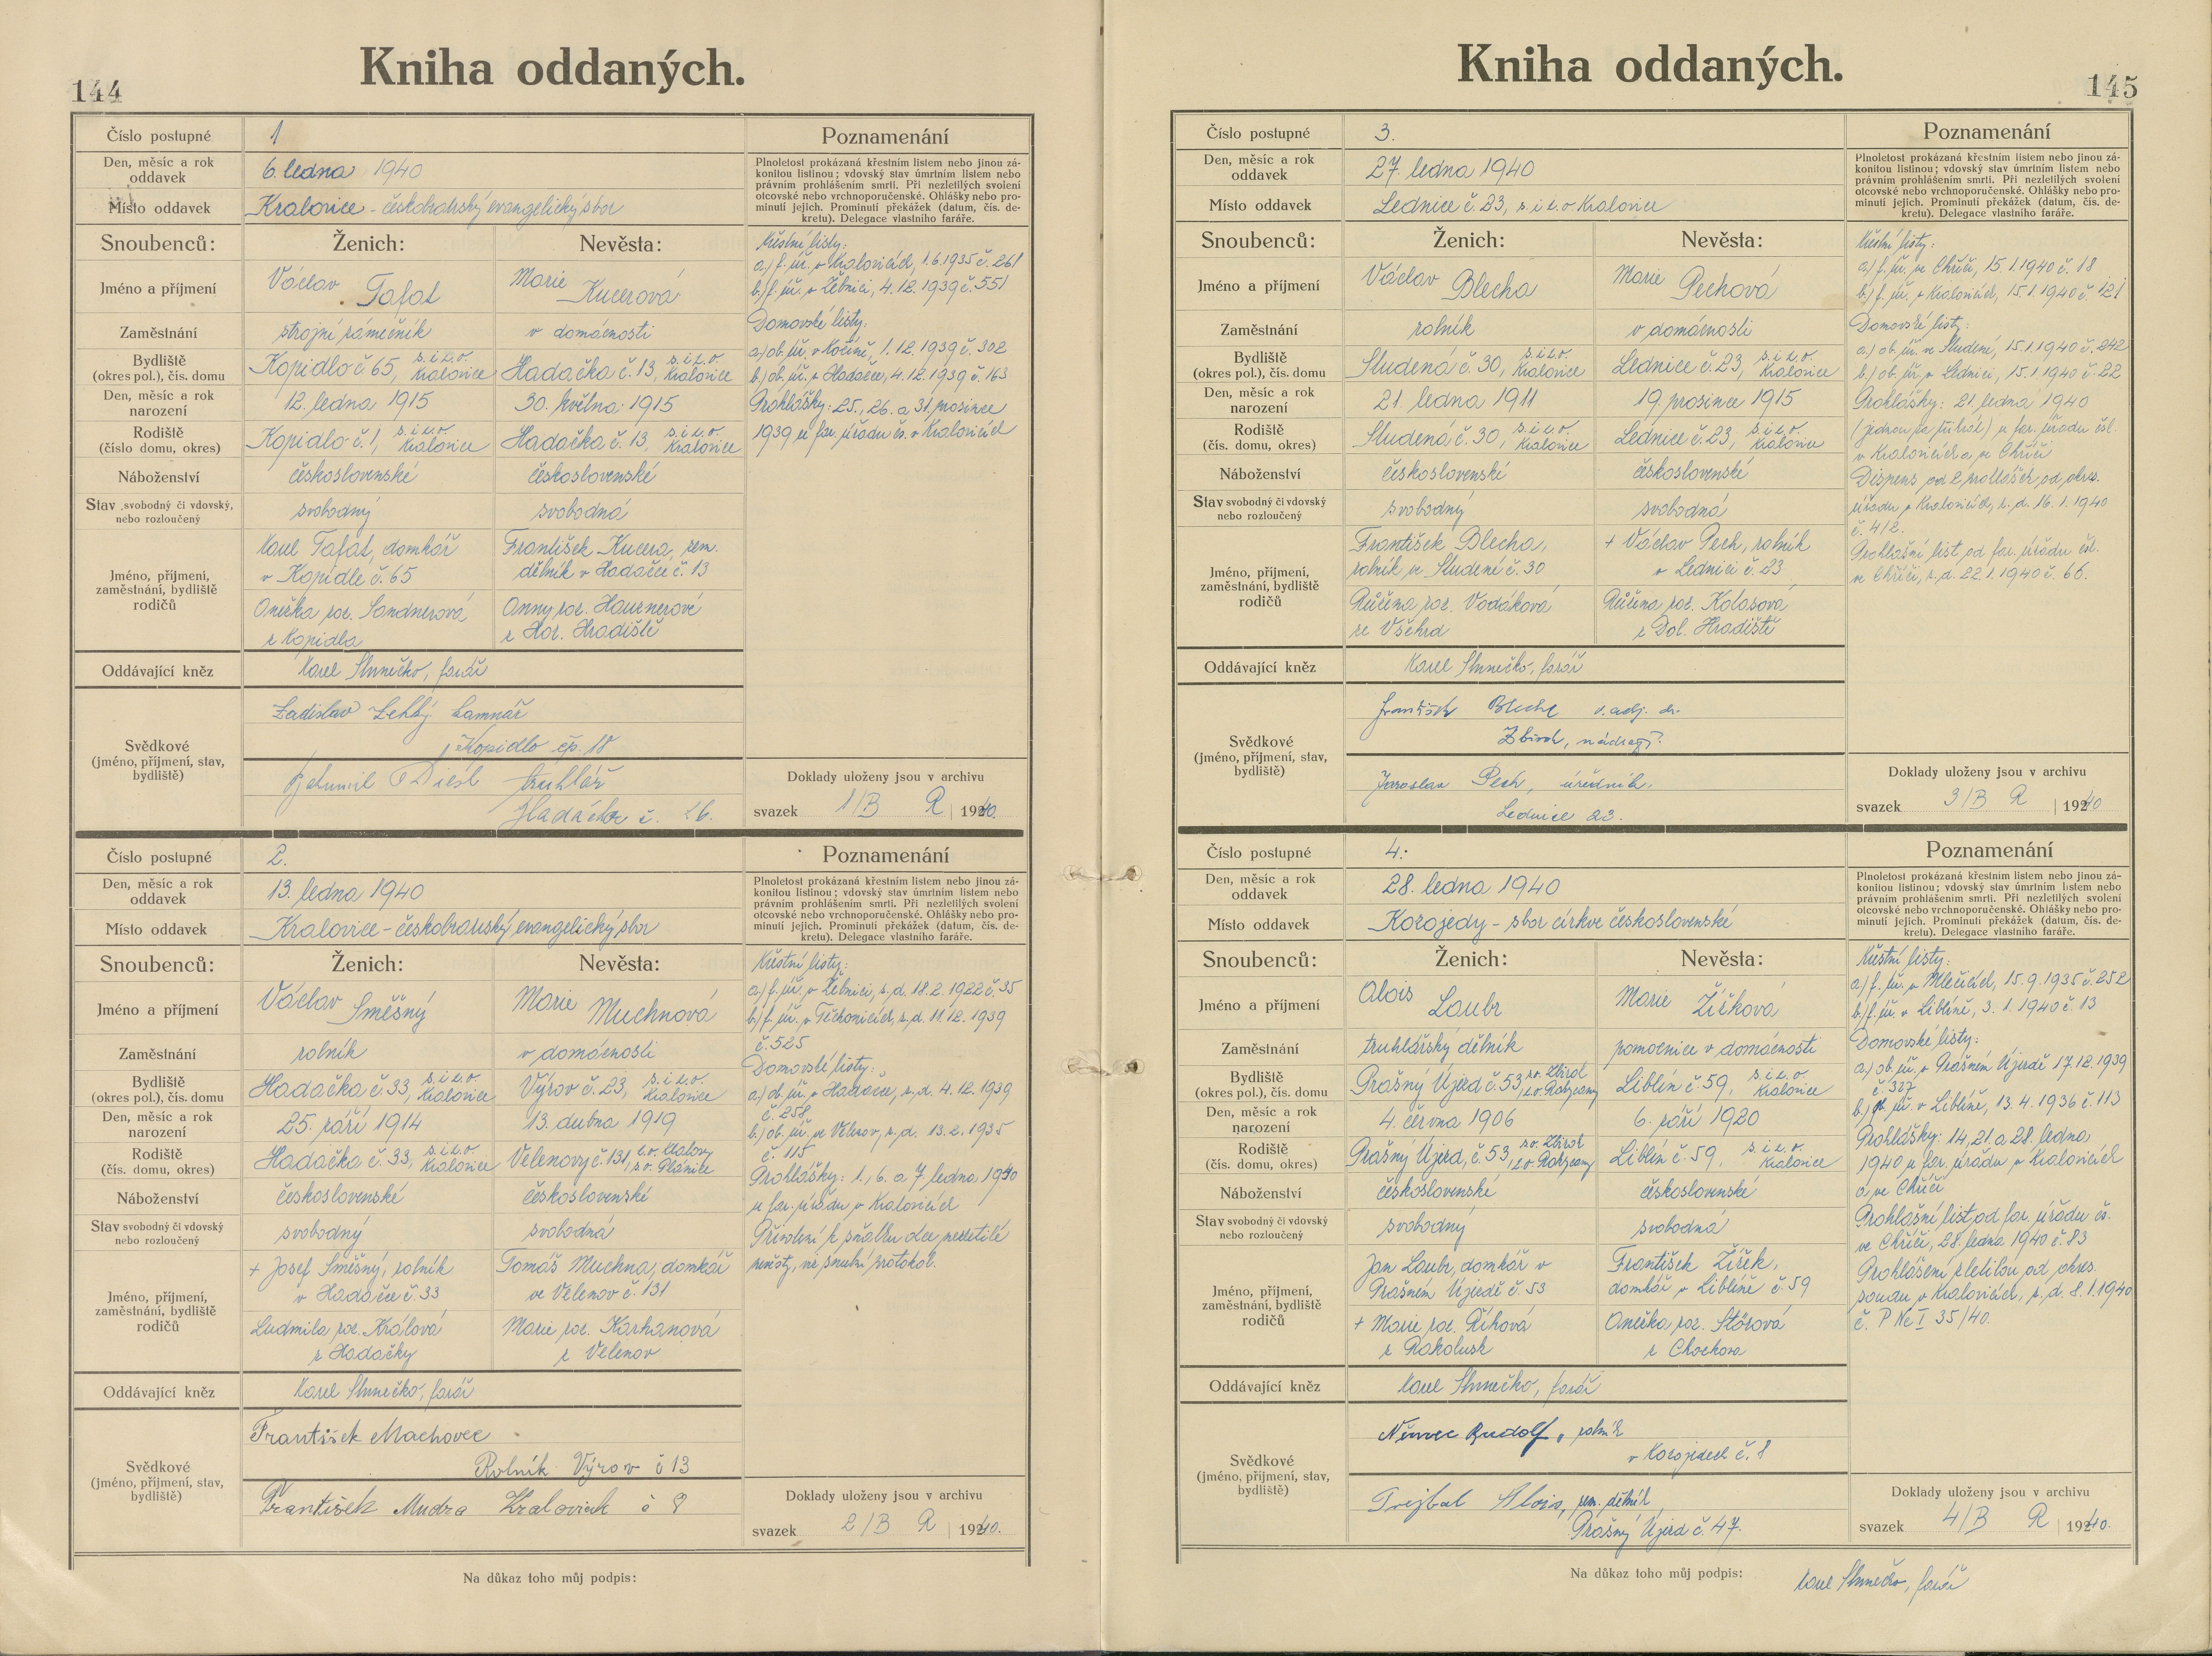 Kniha oddaných.
144
Číslo postupné 1
Den, měsíc a rok oddavek 6. ledna 1940
Místo oddavek Kralovice - českobratrský evangelický sbor
Poznamenání
Plnoletost prokázaná křestním listem nebo jinou zá-
konitou listinou; vdovský stav úmrtním listem nebo
právním prohlášením smrti. Při nezletilých svolení
otcovské nebo vrchnoporučenské. Ohlášky nebo pro-
minutí jejich. Prominutí překážek (datum, čís. de-
kretu). Delegace vlastního faráře.
Snoubenců: Ženich: Nevěsta:
Jméno a příjmení Václav Tafat Marie Kucerová
Zaměstnání strojní zámečník v domácnosti
Bydliště (okres pol.), čís. domu Kopidlo č 65, s. i z. o. Kralovice Hadačka č. 13, s. i z. o. Kralovice
Den, měsíc a rok narození 12. ledna 1915 30. května 1915
Rodiště (číslo domu, okres) Kopidlo č. 1, s. i z. o. Kralovice Hadačka č. 13, s. i z. o. Kralovice
Náboženství československé československé
Stav svobodný či vdovský, nebo rozloučený svobodný svobodná
Jméno, příjmení, zaměstnání, bydliště rodičů
Karel Tafat, domkář
v Kopidle č. 65
František Kucera, zem.
dělník v Hadačce č. 13
Anežka roz. Sandnerová
z Kopidla
Anny roz. Hausnerové
z Hor. Hradiště
Křestní listy:
a.) f. úř. v Kralovicích, 1.6.1935 č. 261
b.) f. úř. v Žebnici, 4.12.1939 č. 551
Domovské listy:
a.) ob. úř. v Kočíně, 1.12.1939 č. 302
b.) ob. úř. v Hadačce, 4.12.1939 č. 163
Prohlášky: 25., 26. a 31. prosince
1939 u far. úřadu čs. v Kralovicích
Oddávající kněz Karel Slunečko, farář
Svědkové (jméno, příjmení, stav, bydliště)
Ladislav
Kopidlo čp. 18
Bohumil truhlář
Hadačka č.
Doklady uloženy jsou v archivu
svazek 1/B R 1940.
Číslo postupné 2.
Den, měsíc a rok oddavek 13. ledna 1940
Místo oddavek Kralovice - českobratrský evangelický sbor
Poznamenání
Plnoletost prokázaná křestním listem nebo jinou zá-
konitou listinou; vdovský stav úmrtním listem nebo
právním prohlášením smrti. Při nezletilých svolení
otcovské nebo vrchnoporučenské. Ohlášky nebo pro-
minutí jejich. Prominutí překážek (datum, čís. de-
kretu). Delegace vlastního faráře.
Snoubenců: Ženich: Nevěsta:
Jméno a příjmení Václav Směšný Marie Muchnová
Zaměstnání rolník v domácnosti
Bydliště (okres pol.), čís. domu Hadačka č 33, s. i z. o. Kralovice Výrov č. 23, s. i z. o. Kralovice
Den, měsíc a rok narození 25. září 1914 13. dubna 1919
Rodiště (čís. domu, okres) Hadačka č. 33, s. i z. o. Kralovice Velenovy č. 131, z. o. Klatovy, s. o. Plánice
Náboženství československé československé
Stav svobodný či vdovský nebo rozloučený svobodný svobodná
Jméno, příjmení, zaměstnání, bydliště rodičů
+ Josef Směšný, rolník
v Hadačce č. 33
Tomáš Muchna, domkář
ve Velenov č. 131
Ludmila roz. Králová
z Hadačky
Marie roz. Karhanová
z Velenov
Křestní listy:
a.) f. úř. v Žebnici, z. d. 18.2.1922 č. 35
b.) f. úř. v Těchonicích, z. d. 11.12.1939
č. 525
Domovské listy:
a.) ob. úř. v Hadačce, z. d. 4.12.1939
č. 258
b.) ob. úř. ve Velenov, z. d. 13.2.1935
č. 115
Prohlášky: 1., 6. a 7. ledna 1940
u far. úřadu v Kralovicích
Přivolení k sňatku otce nezletilé
nevěsty, viz snubní protokol.
Oddávající kněz Karel Slunečko, farář
Svědkové (jméno, příjmení, stav, bydliště)
František Machovec
Rolník Výrov č 13
František Mudra Kralovice č 8
Doklady uloženy jsou v archivu
svazek 2/B R 1940.
Na důkaz toho můj podpis:
Kniha oddaných.
145
Číslo postupné 3.
Den, měsíc a rok oddavek 27. ledna 1940
Místo oddavek Lednice č. 23, s. i z. o. Kralovice
Poznamenání
Plnoletost prokázaná křestním listem nebo jinou zá-
konitou listinou; vdovský stav úmrtním listem nebo
právním prohlášením smrti. Při nezletilých svolení
otcovské nebo vrchnoporučenské. Ohlášky nebo pro-
minutí jejich. Prominutí překážek (datum, čís. de-
kretu). Delegace vlastního faráře.
Snoubenců: Ženich: Nevěsta:
Jméno a příjmení Václav Blecha Marie Pechová
Zaměstnání rolník v domácnosti
Bydliště (okres pol.), čís. domu Studená č. 30, s. i z. o. Kralovice Lednice č. 23, s. i z. o. Kralovice
Den, měsíc a rok narození 21. ledna 1911 19. prosince 1915
Rodiště (čís. domu, okres) Studená č. 30, s. i z. o. Kralovice Lednice č. 23, s. i z. o. Kralovice
Náboženství československé československé
Stav svobodný či vdovský nebo rozloučený svobodný svobodná
Jméno, příjmení, zaměstnání, bydliště rodičů
František Blecha,
rolník ve Studené č. 30
+ Václav Pech, rolník
v Lednici č. 23
Růžena roz. Vodáková
ze Všehrd
Růžena roz. Kolasová
z Dol. Hradiště
Křestní listy:
a.) f. úř. ve Chříči, 15.1.1940 č. 18
b.) f. úř. v Kralovicích, 15.1.1940 č. 121
Domovské listy:
a.) ob. úř. ve Studené, 15.1.1940 č. 242
b.) ob. úř. v Lednici, 15.1.1940 č. 22
Prohlášky: 21 ledna 1940
(jednou za třikrát) u far. úřadu čsl.
v Kralovicích a ve Chříči
Dispens od 2 prohlášek od okres.
úřadu v Kralovicích, z. d. 16.1.1940
č. 412.
Prohlašní list od far. úřadu čsl.
ve Chříči, z. d. 22.1.1940 č. 66.
Oddávající kněz Karel Slunečko, farář
Svědkové (jméno, příjmení, stav, bydliště)
František Blecha
Zbiroh,
Jaroslav Pech, úředník,
Lednice 23.
Doklady uloženy jsou v archivu
svazek 3/B R 1940
Číslo postupné 4.
Den, měsíc a rok oddavek 28. ledna 1940
Místo oddavek Kozojedy - sbor církve československé
Poznamenání
Plnoletost prokázaná křestním listem nebo jinou zá-
konitou listinou; vdovský stav úmrtním listem nebo
právním prohlášením smrti. Při nezletilých svolení
otcovské nebo vrchnoporučenské. Ohlášky nebo pro-
minutí jejich. Prominutí překážek (datum, čís. de-
kretu). Delegace vlastního faráře.
Snoubenců: Ženich: Nevěsta:
Jméno a příjmení Alois Laubr Marie Žížková
Zaměstnání truhlářský dělník pomocnice v domácnosti
Bydliště (okres pol.), čís. domu Prašný Újezd č. 53, so. Zbiroh z. o. Rokycany Liblín č. 59, s. i z. o. Kralovice
Den, měsíc a rok narození 4. června 1906 6. září 1920
Rodiště (čís. domu, okres) Prašný Újezd, č. 53, so. Zbiroh z. o. Rokycany Liblín č. 59, s. i z. o. Kralovice
Náboženství československé československé
Stav svobodný či vdovský nebo rozloučený svobodný svobodná
Jméno, příjmení, zaměstnání, bydliště rodičů
Jan Laubr, domkář v
Prašném Újezdě č. 53
František Žížek,
domkář v Liblíně č. 59
+ Marie roz. Říhová
z Rakolusk
Anežka roz. Störová
z Chockova
Křestní listy:
a.) f. úř. v Mlečicích, 15.9.1935 č. 252
b.) f. úř. v Liblíně, 3.1.1940 č. 13
Domovské listy:
a.) ob. úř. v Prašném Újezdě 17.12.1939
č. 327
b.) ob. úř. v Liblíně, 13.4.1936 č. 113
Prohlášky: 14, 21. a 28. ledna
1940 u far. úřadu v Kralovicích
a ve Chříči
Prohlašní list od far. úřadu čs.
ve Chříči, 28. ledna 1940 č. 83
Prohlášení zletilou od okres.
soudu v Kralovicích, z. d. 8.1.1940
č. P Nc I 35/40.
Oddávající kněz Karel Slunečko, farář
Svědkové (jméno, příjmení, stav, bydliště)
Němec Rudolf, rolník
v Kozojedech č. 8
Trejbal Alois, zem. dělník,
Prašný Újezd č. 47.
Doklady uloženy jsou v archivu
svazek 4/B R 1940.
Na důkaz toho můj podpis: Karel Slunečko, farář